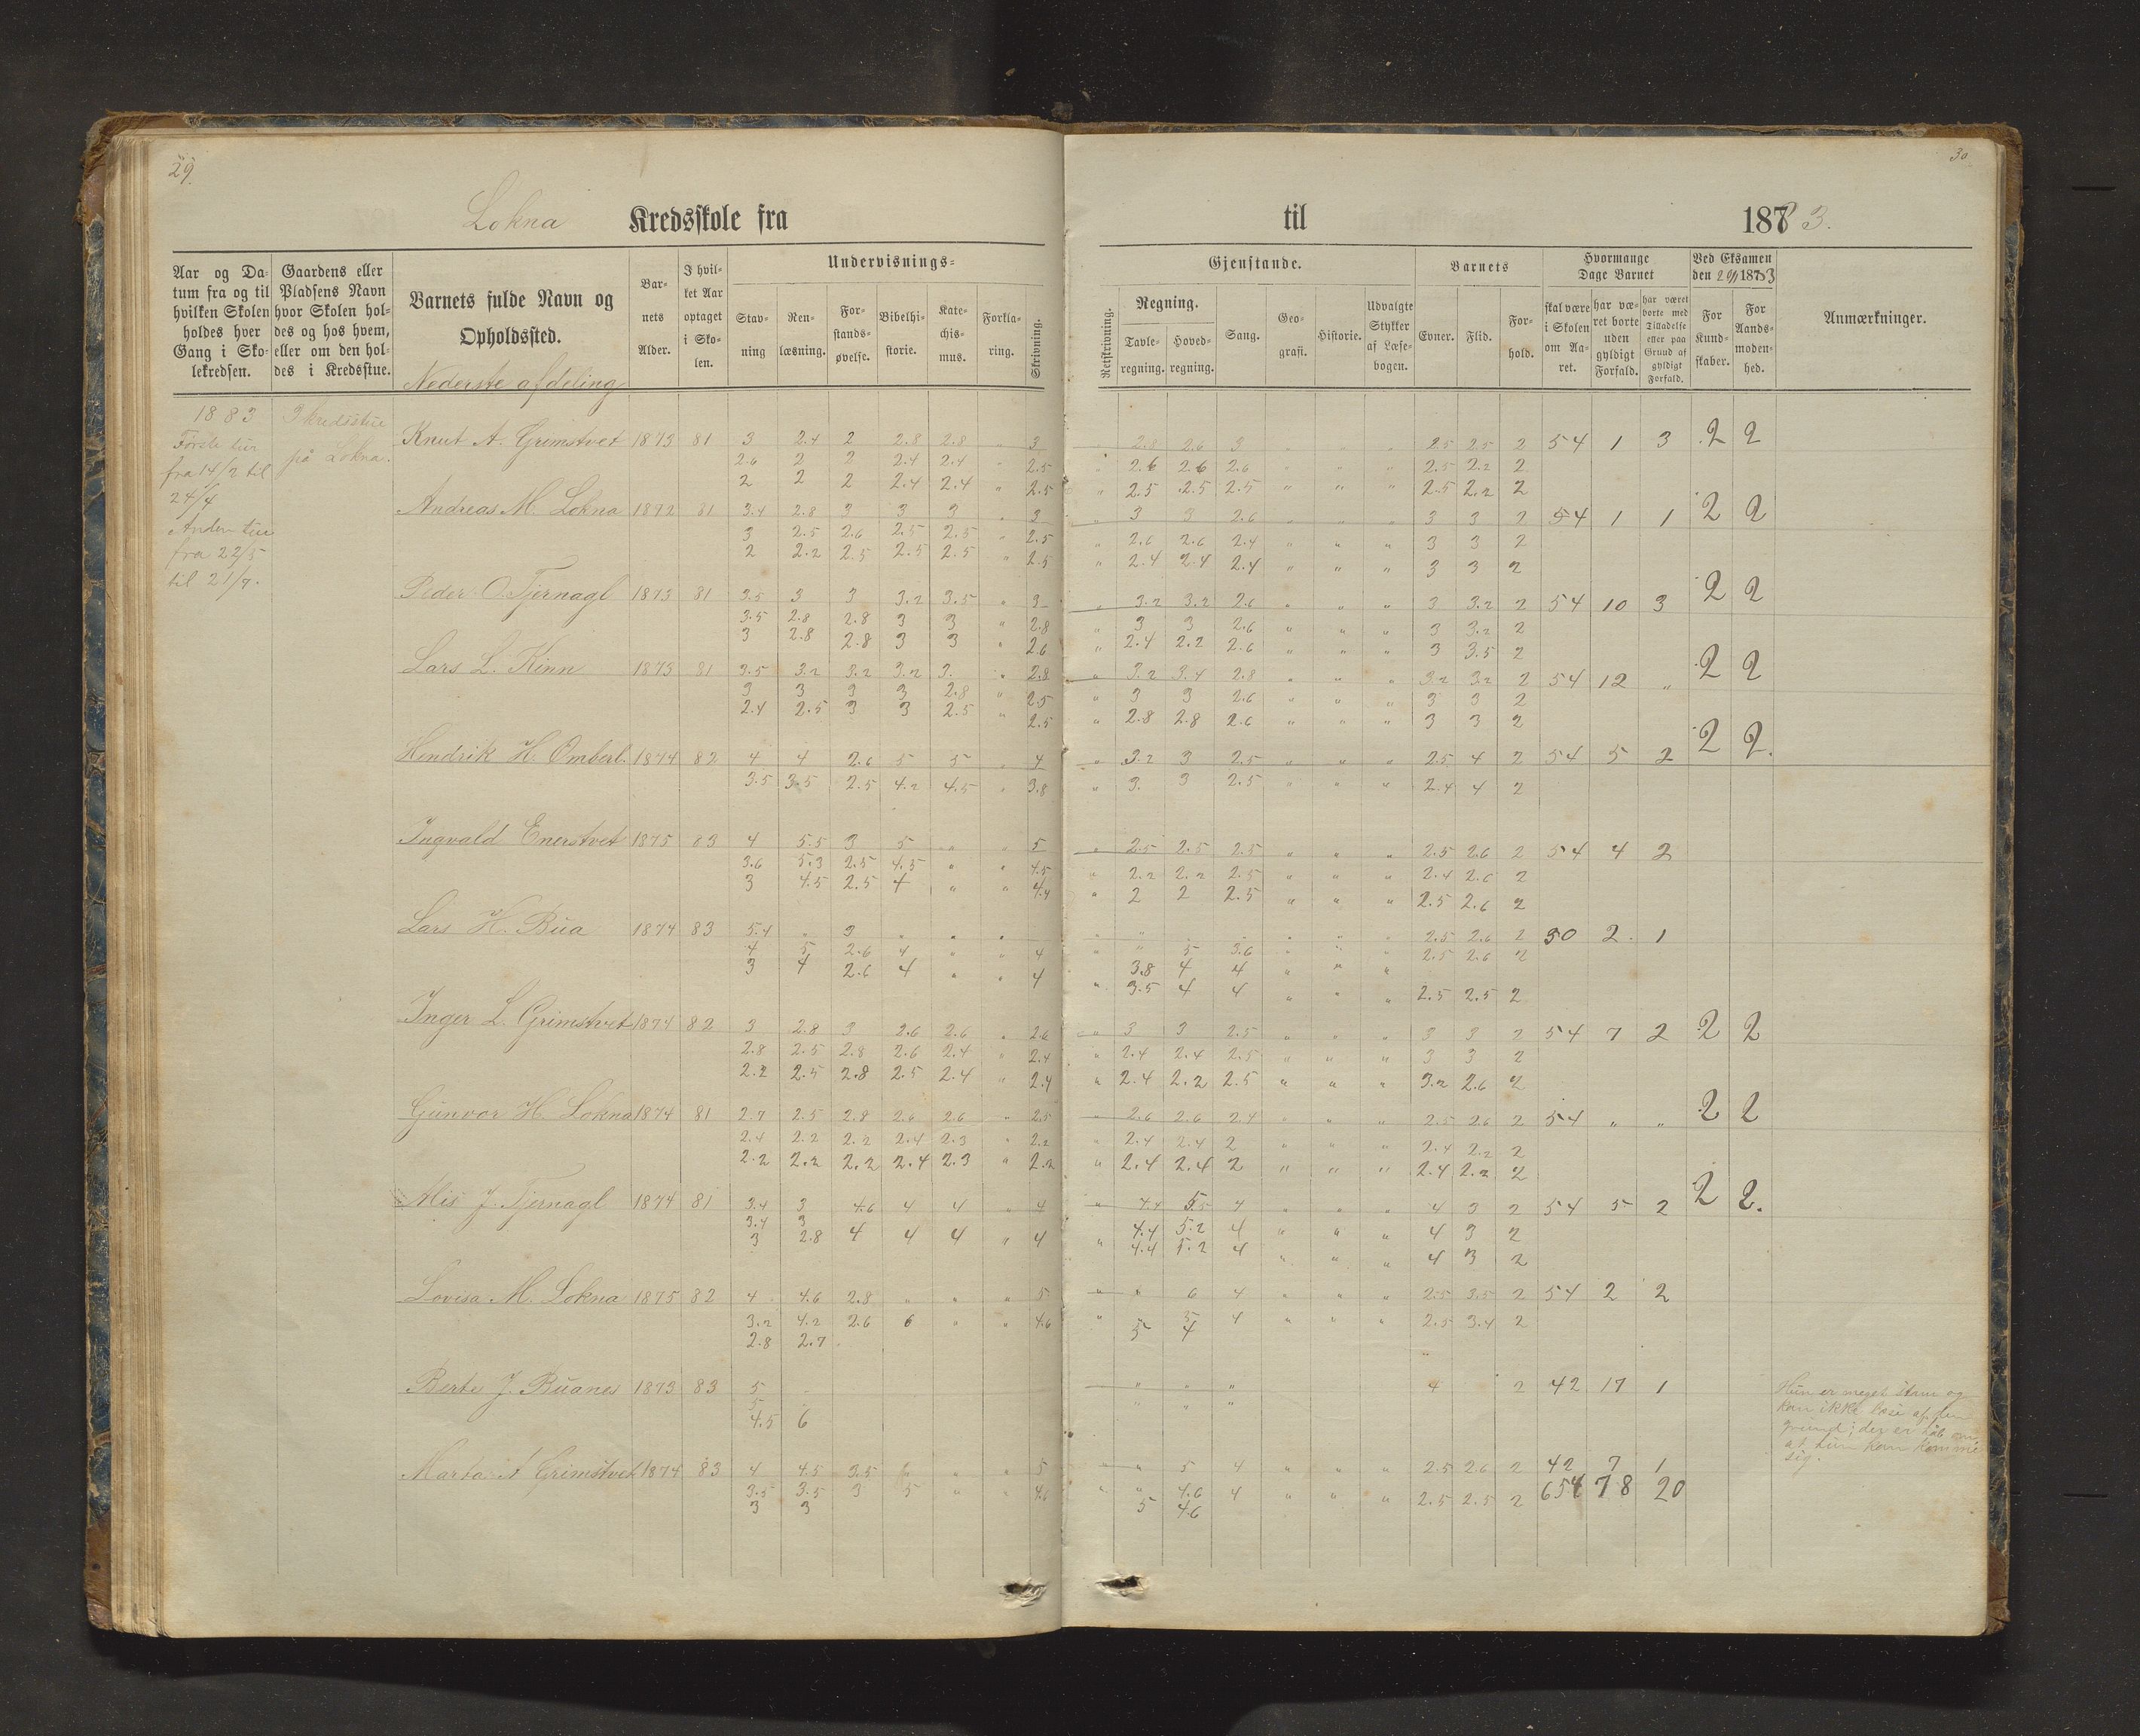 29.
30
Lokna Kredsskole fra til 1883.
Aar og Da-
tum fra og til
hvilken Skolen
holdes hver
Gang i Sko-
lekredsen.
Gaardens eller
Pladsens Navn
hvor Skolen hol-
des og hos hvem,
eller om den hol-
des i Kredsstue.
Barnets fulde Navn og
Opholdssted.
Bar-
nets
Alder.
I hvil-
ket Aar
optaget
i Sko-
len.
Undervisnings-
Stav-
ning
Ren-
læsning.
For-
stands-
øvelse.
Bibelhi-
storie.
Kate-
chis-
mus.
Forkla-
ring.
Skrivning.
Gjenstande.
Retskrivning.
Regning.
Tavle-
regning.
Hoved-
regning.
Sang.
Geo-
grafi.
Historie.
Udvalgte
Stykker
af Læse-
bogen.
Barnets
Evner.
Flid.
For-
hold.
Hvormange
Dage Barnet
skal være
i Skolen
om Aa-
ret.
har væ-
ret borte
uden
gyldigt
Forfald.
har været
borte med
Tilladelse
eller paa
Grund af
gyldigt
Forfald.
Ved Eksamen
For
Kund-
skaber.
For
Aands-
moden-
hed.
Anmærkninger.
Nederste afdeling
1883
Første tur
fra 14/2 til
24/4
Anden tur
fra 22/5
til 21/7.
I kredsstue
på Lokna.
Knut A. Grimstvet 1873 81 3 2.4 2 2.8 2.8 " 3 " 2.8 2.6 3 " " " 2.5 2.5 2 54 1 3 2 2
2.6 2 2 2.4 2.4 " 2.5 " 2.6 2.6 2.6 " " " 2.5 2.2 2
2 2 2 2.4 2.4 " 2.5 " 2.5 2.5 2.5 " " " 2.5 2.2 2
Andreas M. Lokna 1872 81 3.4 2.8 3 3 3 " 3 " 3 3 2.6 " " " 3 3 2 54 1 1 2 2
3 2.5 2.6 2.5 2.5 " 2.5 " 2.6 2.6 2.4 " " " 3 3 2
2 2.2 2.5 2.5 2.5 " 2.5 " 2.4 2.4 2.4 " " " 3 3 2
Peder O. Tjernagl 1873 81 3.5 3 3 3.2 3.5 " 3 " 3.2 3.2 2.6 " " " 3 3.2 2 54 10 3 2 2
3.5 2.8 2.8 3 3 " 2.8 " 3 3 2.6 " " " 3 3.2 2
3 2.8 2.8 3 3 " 2.6 " 2.4 2.2 2.6 " " " 3 3.5 2
Lars L. Kinn 1873 81 3.5 3.2 3.2 3.2 3. " 2.8 " 3.2 3.4 2.8 " " " 3.2 3.2 2 54 12 " 2 2
3 3 3 3 2.8 " 2.5 " 3 3 2.6 " " " 3 3 2
2.4 2.5 3 3 2.5 " 2.5 " 2.8 2.8 2.6 " " " 3 3 2
Hendrik H. 1874 82 4 4 2.6 5 5 " 4 " 3.2 3 2.5 " " " 2.5 4 2 54 5 2 2 2.
3.5 3.5 2.5 4.2 4.5 " 3.8 " 3. 3 2.5 " " " 2.4 4 2
Ingvald Enerstvet 1875 83 4 5.5 3 5 " " 5 " 2.5 2.5 2.5 " " " 2.5 2.6 2 54 4 2
3.6 5.3 2.5 4.5 " " 4.5 " 2.2 2.2 2.5 " " " 2.4 2.6 2
3 4.5 2.5 4 " " 4.4 " 2 2 2.5 " " " 2.5 2.6 2
Lars H. Bua 1874 83 5.4 " 3 " " " " " " " " " " 2.5 2.6 2 30 2 1
4 5 2.6 4 " " 4 " " 5 3.6 " " " 2.5 2.6 2
3 4 2.6 4 " " 4 3.8 4 4 " " "
" 3.5 4 4 " " " 2.5 2.5 2
Inger L. Grimstvet 1874 82 3 2.8 3 2.6 2.6 " 2.6 " 3 3 2.5 " " " 3 3 2 54 7 2 2 2
2.8 2.5 2.8 2.6 2.4 " 2.4 " 2.4 2.4 2.5 " " " 3 3 2
2.2 2.5 2.8 2.5 2.4 " 2.4 " 2.4 2.2 2.5 " " " 3.2 2.6 2
Gunvor H. Lokna 1874 81 2.7 2.5 2.8 2.6 2.6 " 2.5 " 2.6 2.6 2.4 " " " 2.5 2.6 2 54 " " 2 2
2.4 2.2 2.2 2.4 2.3 " 2.2 " 2.4 2.4 2 " " " 2.4 2.2 2
2.2 2.2 2.2 2.4 2.3 " 2.2 " 2.4 2.4 2 " " " 2.4 2.2 2
J. Tjernagl 1874 81 3.4 3 4.6 4 4 " 4 " 4.4 5.5 4 " " " 4 3 2 54 5 2 2 2.
3.4 3 4.4 5.2 4 " " " 4 3 2
3 2.8 4 4 4 " 4 " 4.4 5.2 4 " " " 4 3 2
Lovisa M. Lokna 1875 82 4 4.6 2.8 " " " 5 " " 6 4 " " " 2.5 3.5 2 54 2 2
3.2 4.2 2.6 6 " " 4.6 " " 5 4 " " " 2.5 3.4 2
2.8 2.7 5 4
Berte J. Buanes 1873 83 5 " " " 4 2 42 17 1
5 " " "
4.5 6
Hun er meget stam og
kan ikke læse af den
grund; der er håb om
at hun kan komme
sig.
Marta A Grimstvet 1874 83 4 4.5 3.5 " " " 5 " " 5 4 " " " 2.5 2.6 2 42 7 1
3.5 3.5 3 5 " " 4.6 " " 4.6 4 " " " 2.5 2.5 2 654 78 20
3 3 5 4.6